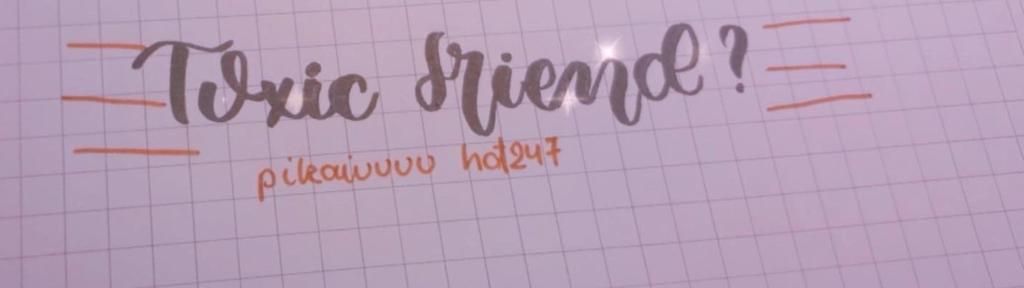 Toxic friend?
pikaiuuuu hot247